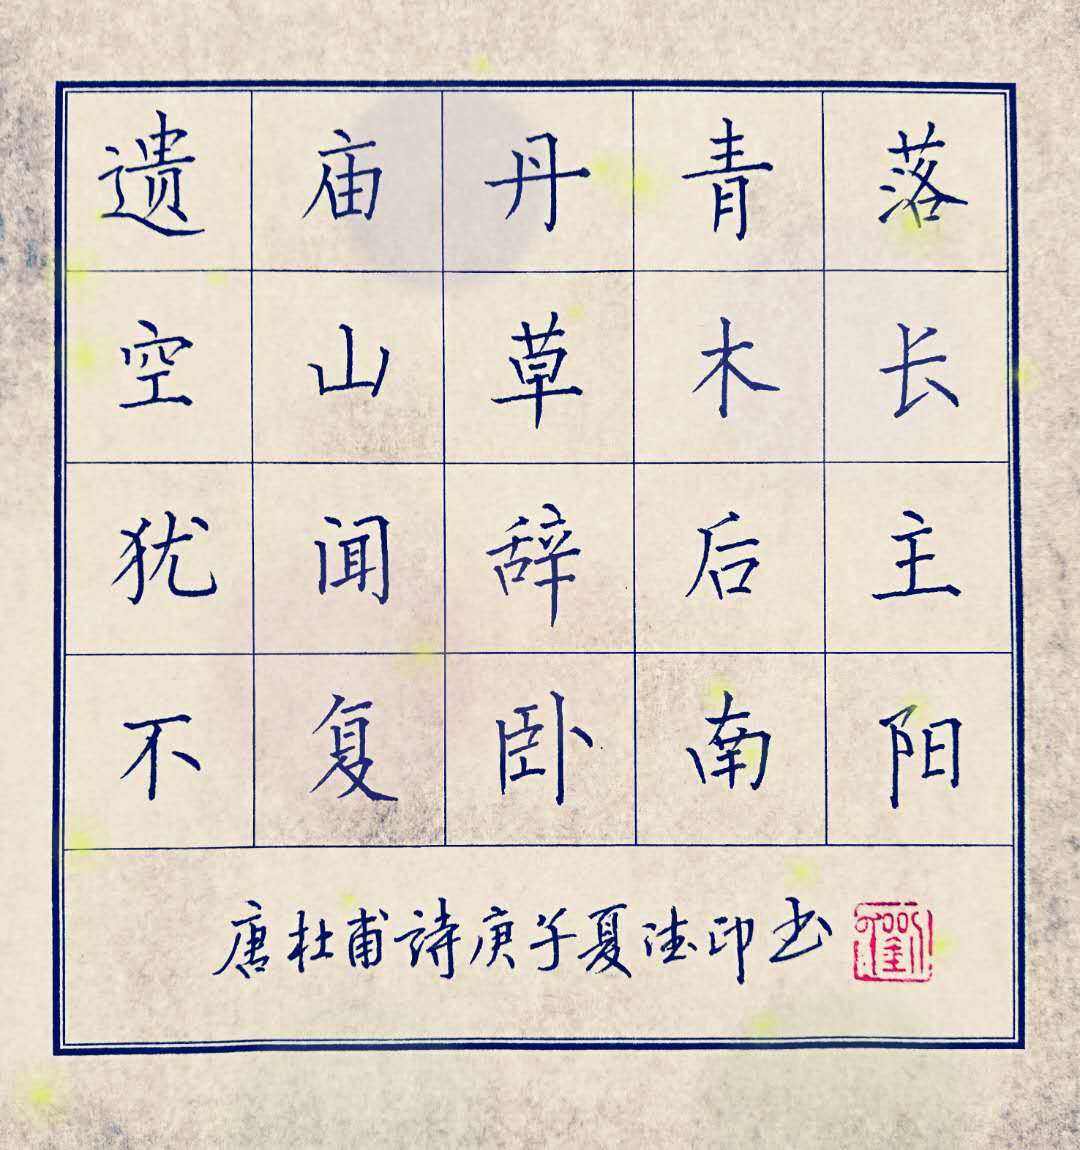 遗庙丹青落
空山草木长
犹闻辞后主
不复卧南阳
唐杜甫詩庚子夏法印书
劉